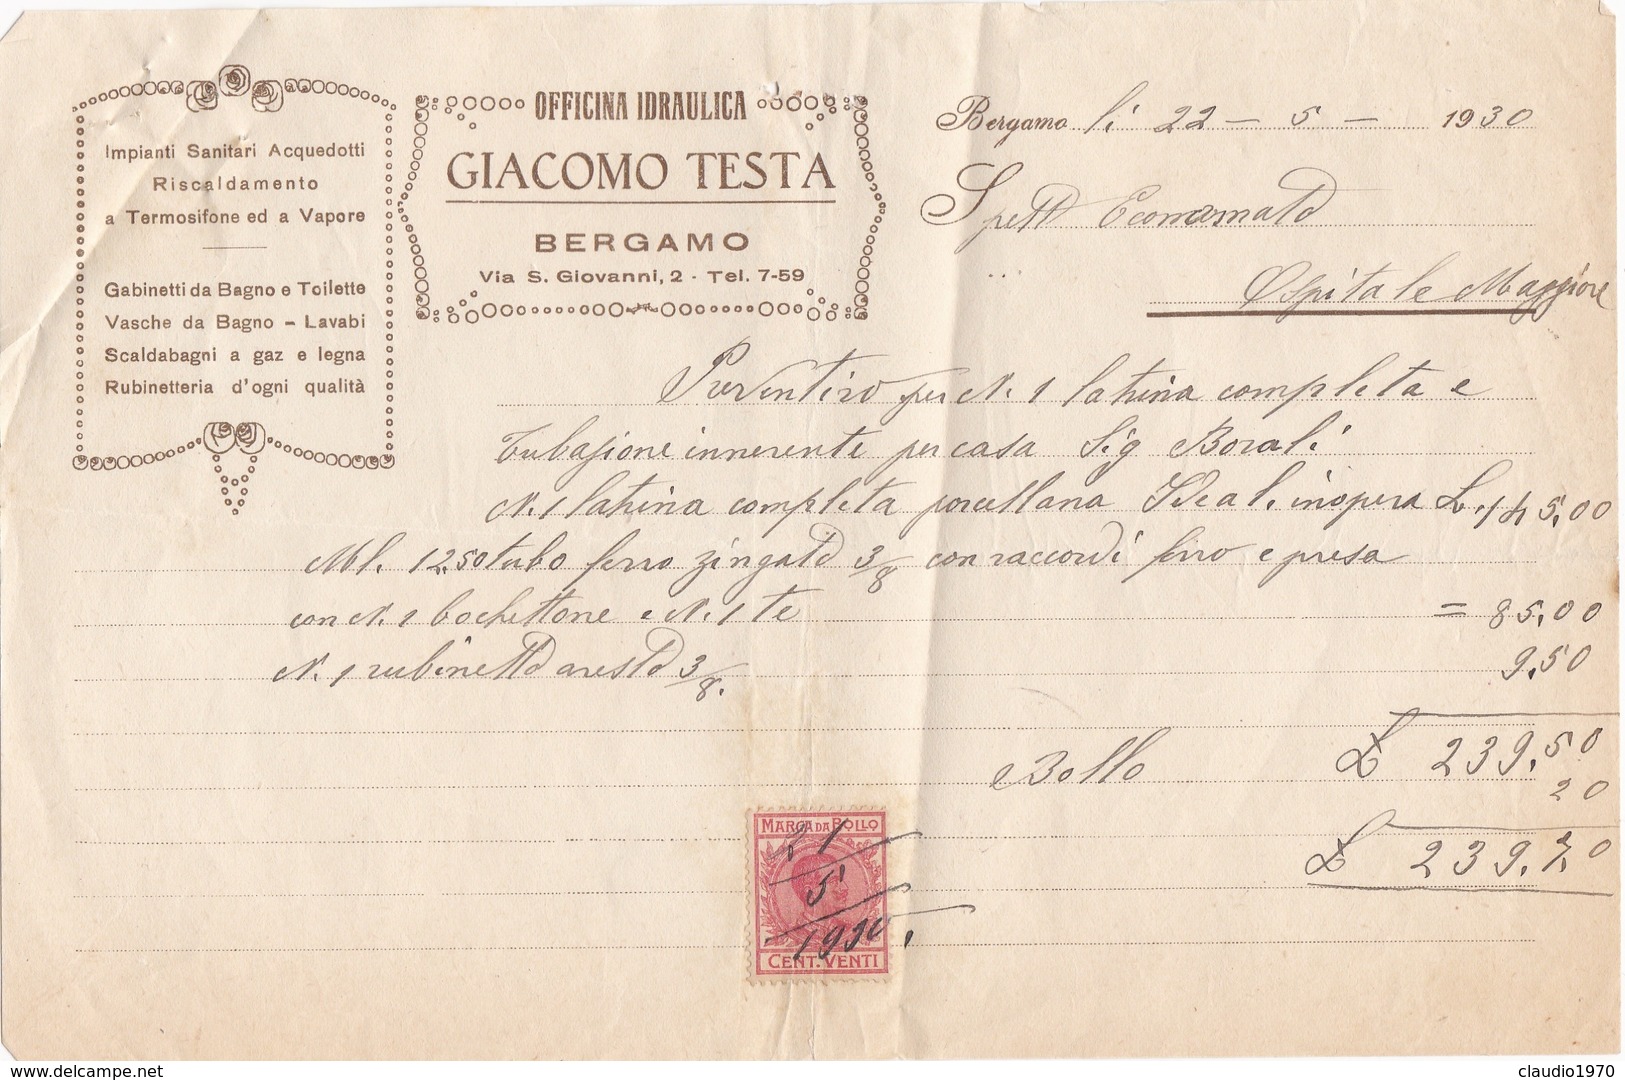 Impianti Sanitari Acquedotti
Riscaldamento
a Termosifone ed a Vapore
Gabinetti da Bagno e Toilette
Vasche da Bagno - Lavabi
Scaldabagni a gaz e legna
Rubinetteria d'ogni qualità
OFFICINA IDRAULICA
GIACOMO TESTA
BERGAMO
Via S. Giovanni, 2 - Tel. 7-59
Bergamo li 22 - 5 - 1930
Spett Economato
Ospitale Maggiore
Preventivo per N. 1 latrina completa e
tubazione innerente per casa Sig Borali
N. 1 latrina completa porcellana Ideal. in opera L. 145,00
Ml. 12.50 tubo ferro zingato 3/8 con raccordi ferro e presa
con N. 1 bochettone e N. 1 te = 85,00
N. 1 rubinetto aresto 3/8. 9.50
L 239.50
Bollo 20
L 239.70
MARCA DA BOLLO
21
5
1930.
CENT. VENTI
www.delcampe.net
claudio1970